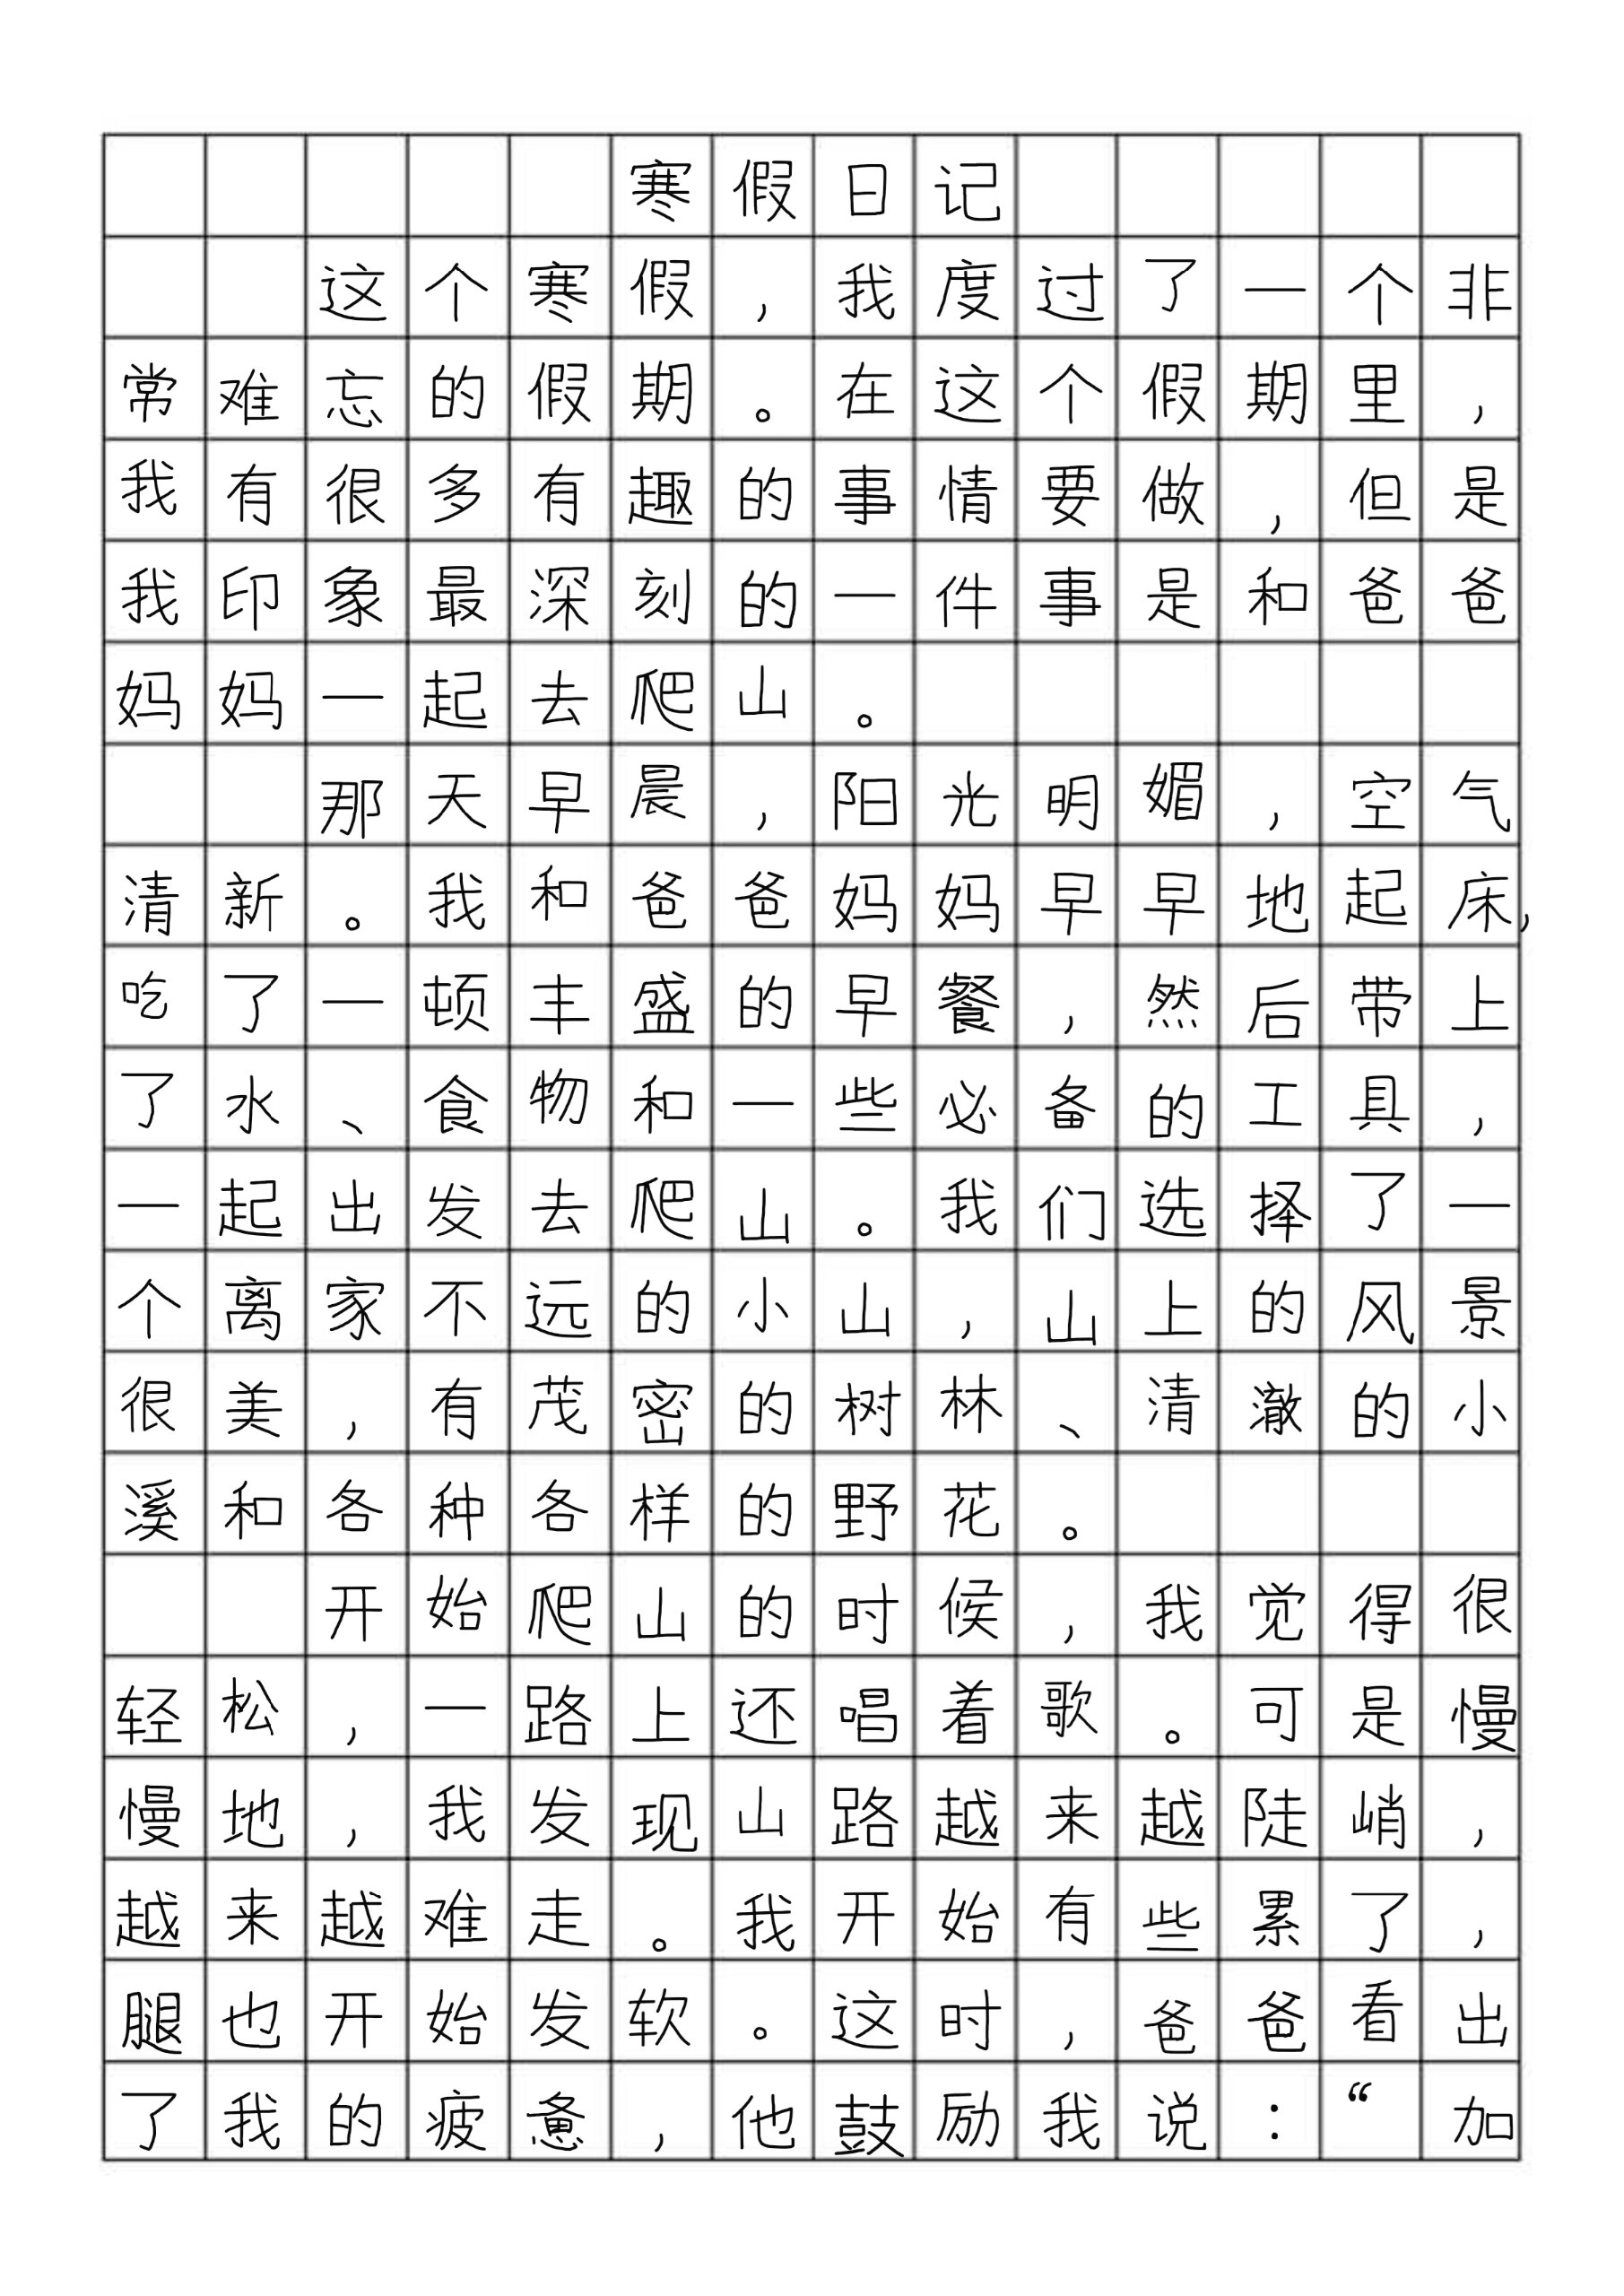 寒假日记
这个寒假，我度过了一个非
常难忘的假期。在这个假期里，
我有很多有趣的事情要做，但是
我印象最深刻的一件事是和爸爸
妈妈一起去爬山。
那天早晨，阳光明媚，空气
清新。我和爸爸妈妈早早地起床，
吃了一顿丰盛的早餐，然后带上
了水、食物和一些必备的工具，
一起出发去爬山。我们选择了一
个离家不远的小山，山上的风景
很美，有茂密的树林、清澈的小
溪和各种各样的野花。
开始爬山的时候，我觉得很
轻松，一路上还唱着歌。可是慢
慢地，我发现山路越来越陡峭，
越来越难走。我开始有些累了，
腿也开始发软。这时，爸爸看出
了我的疲惫，他鼓励我说：“加